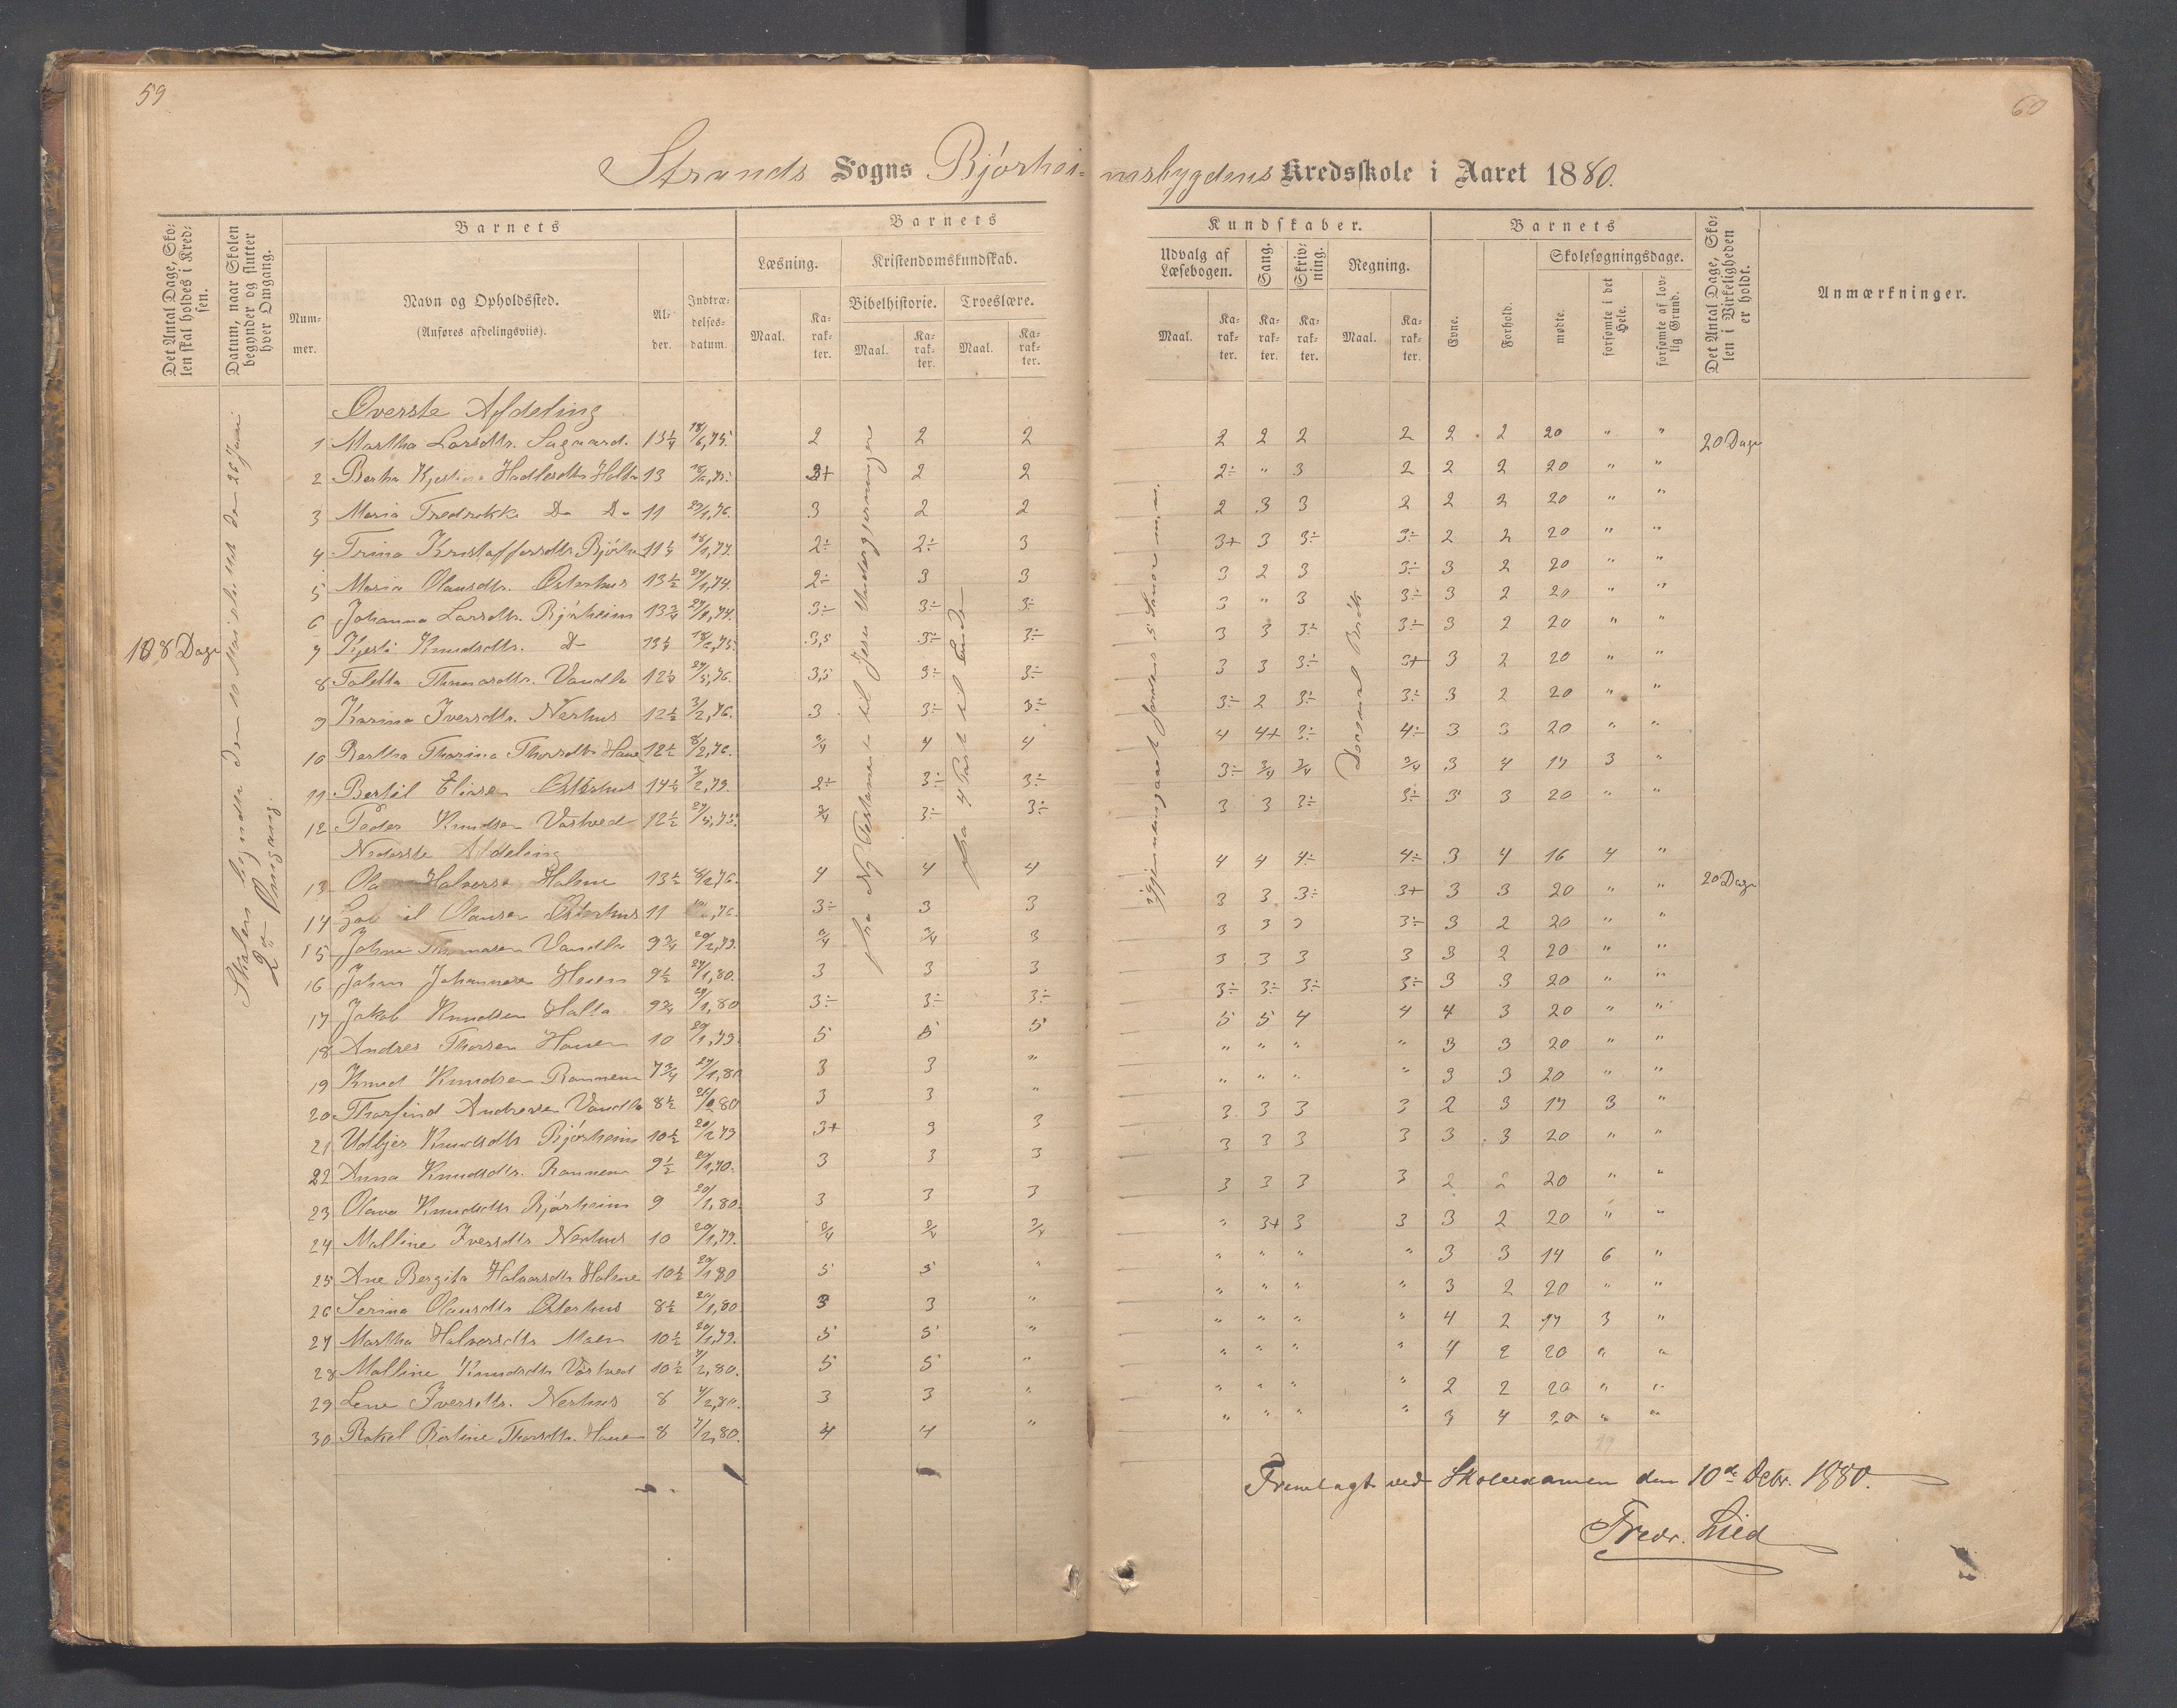 59
60
Strands Sogns Bjørhei- msbygdens Kredsskole i Aaret 1880.
Det Antal Dage, Skolen skal holdes i Kredsen.
Datum, naar Skolen begynder og slutter hver Omgang.
Barnets
Nummer.
Navn og Opholdssted.
(Anføres afdelingsviis).
Alder.
Indtrædelsesdatum.
Barnets
Læsning.
Kristendomskundskab.
Bibelhistorie. Troeslære.
Maal. Karakter. Maal. Karakter. Maal. Karakter.
Kundskaber.
Udvalg af Læsebogen. Sang. Skrivning. Regning.
Maal. Karakter. Karakter. Karakter. Maal. Karakter.
Barnets
Evne. Forhold.
Skolesøgningsdage.
mødte. forsømte i det Hele. forsømte af lovlig Grund.
Det Antal Dage, Skolen i Virkeligheden er holdt.
Anmærkninger.
108 Dage
Skolen begyndte den 10 Mai sluttet den 26 Juni
2den Omgang.
fra Ny Testamente til Jesu Undergjerninger
fra 4 Part til Ende
Igjennemgaaet Jordens 5 Zoner m.m.
Øverste Afdeling
1 Martha Larsdtr. Sagaard. 13¼ 18/6,75. 2 2 2 2 2 2 2 2 2 20 " " 20 Dage
2 Berha Kjestina Hadlesdtr Holta 13 18/6,75. 3+ 2 2 2÷ " 3 2 2 2 20 " "
3 Maria Fredrekke Do Do 11 29/1,76. 3 2 2 2 3 3 2 2 2 20 " "
4 Trina Kristoffersdtr Bjørhe 11¼ 18/1,77. 2÷ 2÷ 3 3+ 3 3÷ 3÷ 2 2 20 " "
5 Maria Olausdtr. Østerhus 13½ 29/1,74. 2÷ 3 3 3 2 3 3÷ 3 2 20 " "
6 Johanna Larsdtr. Bjørheim 13¾ 3÷ 3÷ 3÷ 3 " 3 3÷ 3 2 20 " "
7 Kjesti Knudsdtr. Do 13¼ 18/6,75. 3,5 3÷ 3÷ 3 3 3÷ 3÷ 3 2 20 " "
8 Taletta Thomasdtr. Vandla 12¼ 29/5,76. 3,5 3÷ 3÷ 3 3 3÷ 3+ 3 2 20 " "
9 Karina Iversdtr. Nerhus 12½ 3/2,76. 3 3÷ 3÷ 3÷ 2 3÷ 3÷ 3 2 20 " "
10 Bertha Tharina Thorsdtr Haue 12½ 8/2,76. 3/4 4 4 4 4+ 3÷ 4÷ 3 3 20 " "
11 Bertel Eliasen Østerhus 14¼ 3/2,79. 2÷ 3÷ 3÷ 3÷ 3/4 3/4 3/4 3 4 17 3 "
12 Peder Knudsen Vastved 12½ 29/5,75. 3/4 3÷ 3÷ 3 3 3÷ 3÷ 3 3 20 " "
Nederste Afdeling
13 Halverse Holme 13½ 8/2,76. 4 4 4 4 4 4÷ 4÷ 3 4 16 4 "
14 Olausen Østerhus 11 3÷ 3 3 3 3 3÷ 3+ 3 3 20 " " 20 Dage
15 Johan Thomasen Vandla 9¾ 20/2,79. 3/4 3/4 3 3 3 3 3÷ 3 2 20 " "
16 Johan Johannesen Heien 9½ 29/1,80. 3 3 3 3 3 3 3 3 2 20 " "
17 Jakob Knudsen Holta 9¾ 29/1,80 3÷ 3÷ 3÷ 3÷ 3÷ 3÷ 3÷ 3 3 20 " "
18 Andres Thorsen Hauen 10 20/1,79. 5 5 5 5 5 4 4 4 3 20 " "
19 Knud Knudsen Rannem 7¾ 29/1,80 3 3 " " " " " 3 3 20 " "
20 Thorfind Andreasen Vandla 8½ 3 3 " " " " " 3 3 20 " "
21 Udbjer Knudsdtr Bjørheim 10½ 20/2 79 3+ 3 3 3 3 3 3 2 3 17 3 "
22 Anna Knudsdtr. Rannem 9½ 3 3 3 3 3 3 3 3 3 20 " "
23 Olava Knudsdtr Bjørheim 9 20/1,80. 3 3 3 3 3 3 3 2 2 20 " "
24 Malline Iversdtr Nerhus 10 20/1,79. 3/4 3/4 3/4 " 3+ 3 3 3 2 20 " "
25 Ane Bergita Halvorsdtr Holme 10½ 20/1 80 5 5 " " " " " 3 3 14 6 "
26 Serina Olausdtr Østerhus 8½ 20/1,80. 3 3 " " " " " 3 2 20 " "
27 Martha Halvorsdtr Moen 10½ 20/1,79. 5 5 " " " " " 4 2 17 3 "
28 Malline Knudsdtr Vastved 10½ 7/2,80. 5 5 " " " " " 4 2 20 " "
29 Lene Iversdtr. Nerhus 8 7/2,80. 3 3 " " " " " 2 2 20 " "
30 Rakel Bertine Thorsdtr. Haue 8 7/2,80. 4 4 " " " " " 3 4 20 " "
Fremlagt ved Skoleexamen den 10de Debr. 1880.
Fredr. Lied